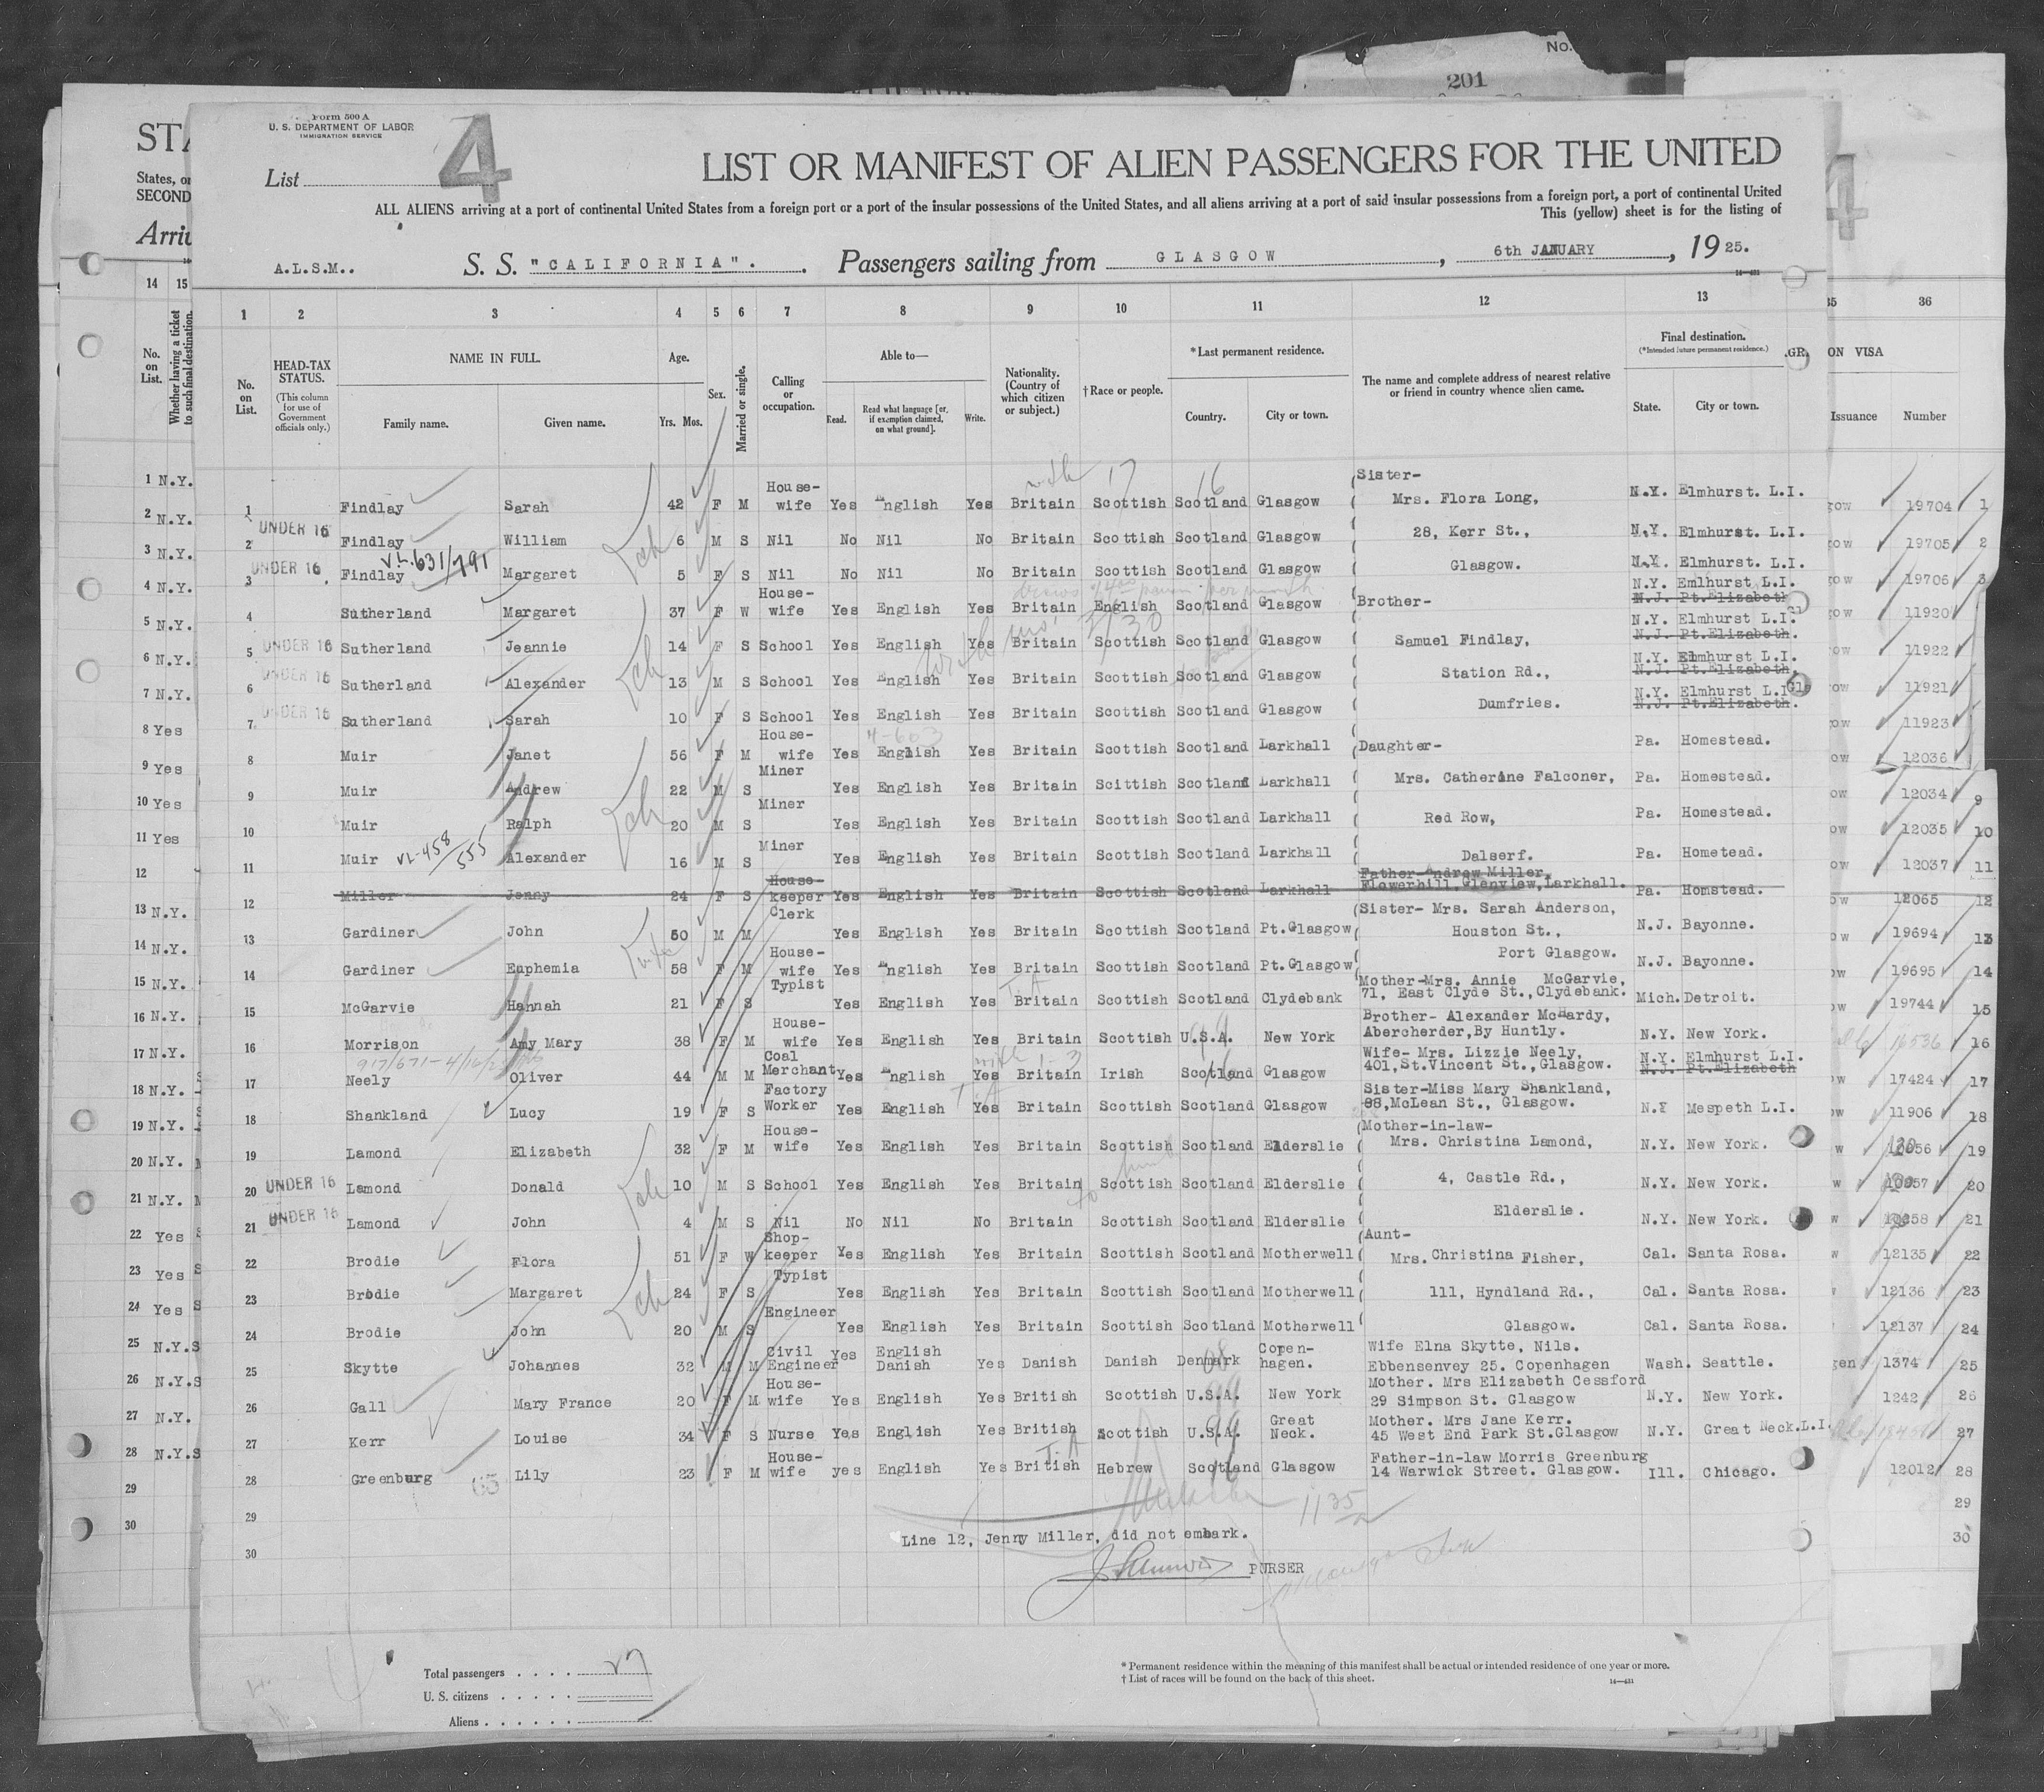 No.
201
Form 500 A
U. S. DEPARTMENT OF LABOR
IMMIGRATION SERVICE
4
List
LIST OR MANIFEST OF ALIEN PASSENGERS FOR THE UNITED
ALL ALIENS arriving at a port of continental United States from a foreign port or a port of the insular possessions of the United States, and all aliens arriving at a port of said insular possessions from a foreign port, a port of continental United
This (yellow) sheet is for the listing of
A.L.S.M.. S. S. "CALIFORNIA". Passengers sailing from GLASGOW, 6th JANUARY, 1925.
STA
States, or
SECOND
Arriv
14 15
No. on List.
Whether having a ticket to such final destination.
1 2 3 4 5 6 7 8 9 10 11 12 13
35 36
No. on List.
HEAD-TAX STATUS.
(This column for use of Government officials only.)
NAME IN FULL.
Family name. Given name.
Age.
Yrs. Mos.
Sex.
Married or single.
Calling or occupation.
Able to—
Read. Read what language [or, if exemption claimed, on what ground]. Write.
Nationality. (Country of which citizen or subject.)
†Race or people.
*Last permanent residence.
Country. City or town.
The name and complete address of nearest relative or friend in country whence alien came.
Final destination.
(*Intended future permanent residence.)
State. City or town.
ON VISA
Issuance Number
1 Findlay Sarah 42 F M House-wife Yes English Yes Britain Scottish Scotland Glasgow Sister- Mrs. Flora Long, N.Y. Elmhurst. L.I. 19704 1
2 UNDER 16 Findlay William 6 M S Nil No Nil No Britain Scottish Scotland Glasgow 28, Kerr St., N.Y. Elmhurst. L.I. 19705 2
3 UNDER 16 Findlay Margaret 5 F S Nil No Nil No Britain Scottish Scotland Glasgow Glasgow. N.Y. Elmhurst. L.I. 19706 3
VL.631/791
4 Sutherland Margaret 37 F W House-wife Yes English Yes Britain English Scotland Glasgow Brother- N.Y. Emlhurst L.I. N.J. Pt.Elizabeth 11920
5 UNDER 16 Sutherland Jeannie 14 F S School Yes English Yes Britain Scottish Scotland Glasgow Samuel Findlay, N.Y. Elmhurst L.I. N.J. Pt.Elizabeth. 11922
6 UNDER 16 Sutherland Alexander 13 M S School Yes English Yes Britain Scottish Scotland Glasgow Station Rd., N.Y. Elmhurst L.I. N.J. Pt.Elizabeth. 11921
7 UNDER 16 Sutherland Sarah 10 F S School Yes English Yes Britain Scottish Scotland Glasgow Dumfries. N.Y. Elmhurst L.I N.J. Pt.Elizabeth. 11923
8 Muir Janet 56 F M House-wife Yes English Yes Britain Scottish Scotland Larkhall Daughter- Pa. Homestead. 12036
9 Muir Andrew 22 M S Miner Yes English Yes Britain Scittish Scotland Larkhall Mrs. Catherine Falconer, Pa. Homestead. 12034 9
10 Muir Ralph 20 M S Miner Yes English Yes Britain Scottish Scotland Larkhall Red Row, Pa. Homestead. 12035 10
11 Muir VL-458/555 Alexander 16 M S Miner Yes English Yes Britain Scottish Scotland Larkhall Dalserf. Pa. Hometead. 12037 11
12 Miller Jenny 24 F S House-keeper Yes English Yes Britain Scottish Scotland Larkhall Father-Andrew Miller, Flowerhill, Glenview, Larkhall. Pa. Homstead. 12065 12
13 Gardiner John 50 M M Clerk Yes English Yes Britain Scottish Scotland Pt.Glasgow Sister- Mrs. Sarah Anderson, Houston St., N.J. Bayonne. 19694 13
14 Gardiner Euphemia 58 F M House-wife Yes English Yes Britain Scottish Scotland Pt.Glasgow Port Glasgow. N.J. Bayonne. 19695 14
15 McGarvie Hannah 21 F S Typist Yes English Yes Britain Scottish Scotland Clydebank Mother-Mrs. Annie McGarvie, 71, East Clyde St., Clydebank. Mich. Detroit. 19744 15
16 Morrison Amy Mary 38 F M House-wife Yes English Yes Britain Scottish U.S.A. New York Brother- Alexander McHardy, Abercherder, By Huntly. N.Y. New York. 16536 16
17 Neely Oliver 44 M M Coal Merchant Yes English Yes Britain Irish Scotland Glasgow Wife- Mrs. Lizzie Neely, 401,St.Vincent St., Glasgow. N.Y. Elmhurst L.I. N.J. Pt.Elizabeth 17424 17
18 Shankland Lucy 19 F S Factory Worker Yes English Yes Britain Scottish Scotland Glasgow Sister-Miss Mary Shankland, 88,McLean St., Glasgow. N.Y Mespeth L.I. 11906 18
19 Lamond Elizabeth 32 F M House-wife Yes English Yes Britain Scottish Scotland Elderslie Mother-in-law- Mrs. Christina Lamond, N.Y. New York. 19
20 UNDER 16 Lamond Donald 10 M S School Yes English Yes Britain Scottish Scotland Elderslie 4, Castle Rd., N.Y. New York. 20
21 UNDER 16 Lamond John 4 M S Nil No Nil No Britain Scottish Scotland Elderslie Elderslie. N.Y. New York. 21
22 Brodie Flora 51 F W Shop-keeper Yes English Yes Britain Scottish Scotland Motherwell Aunt- Mrs. Christina Fisher, Cal. Santa Rosa. 12135 22
23 Brodie Margaret 24 F S Typist Yes English Yes Britain Scottish Scotland Motherwell 111, Hyndland Rd., Cal. Santa Rosa. 12136 23
24 Brodie John 20 M S Engineer Yes English Yes Britain Scottish Scotland Motherwell Glasgow. Cal. Santa Rosa. 12137 24
25 Skytte Johannes 32 M M Civil Engineer Yes English Danish Yes Danish Danish Denmark Copen-hagen. Wife Elna Skytte, Nils. Ebbensenvey 25. Copenhagen Wash. Seattle. 1374 25
26 Gall Mary France 20 F M House-wife Yes English Yes British Scottish U.S.A. New York Mother. Mrs Elizabeth Cessford 29 Simpson St. Glasgow N.Y. New York. 1242 26
27 Kerr Louise 34 F S Nurse Yes English Yes British Scottish U.S.A. Great Neck. Mother. Mrs Jane Kerr. 45 West End Park St.Glasgow N.Y. Great Neck.L.I. 27
28 Greenburg Lily 23 F M House-wife yes English Yes British Hebrew Scotland Glasgow Father-in-law Morris Greenburg 14 Warwick Street. Glasgow. Ill. Chicago. 12012 28
29
30
Line 12, Jenny Miller, did not embark.
PURSER
Total passengers . . . . 27
U. S. citizens . . . . .
Aliens . . . . . .
* Permanent residence within the meaning of this manifest shall be actual or intended residence of one year or more.
† List of races will be found on the back of this sheet.
14—431